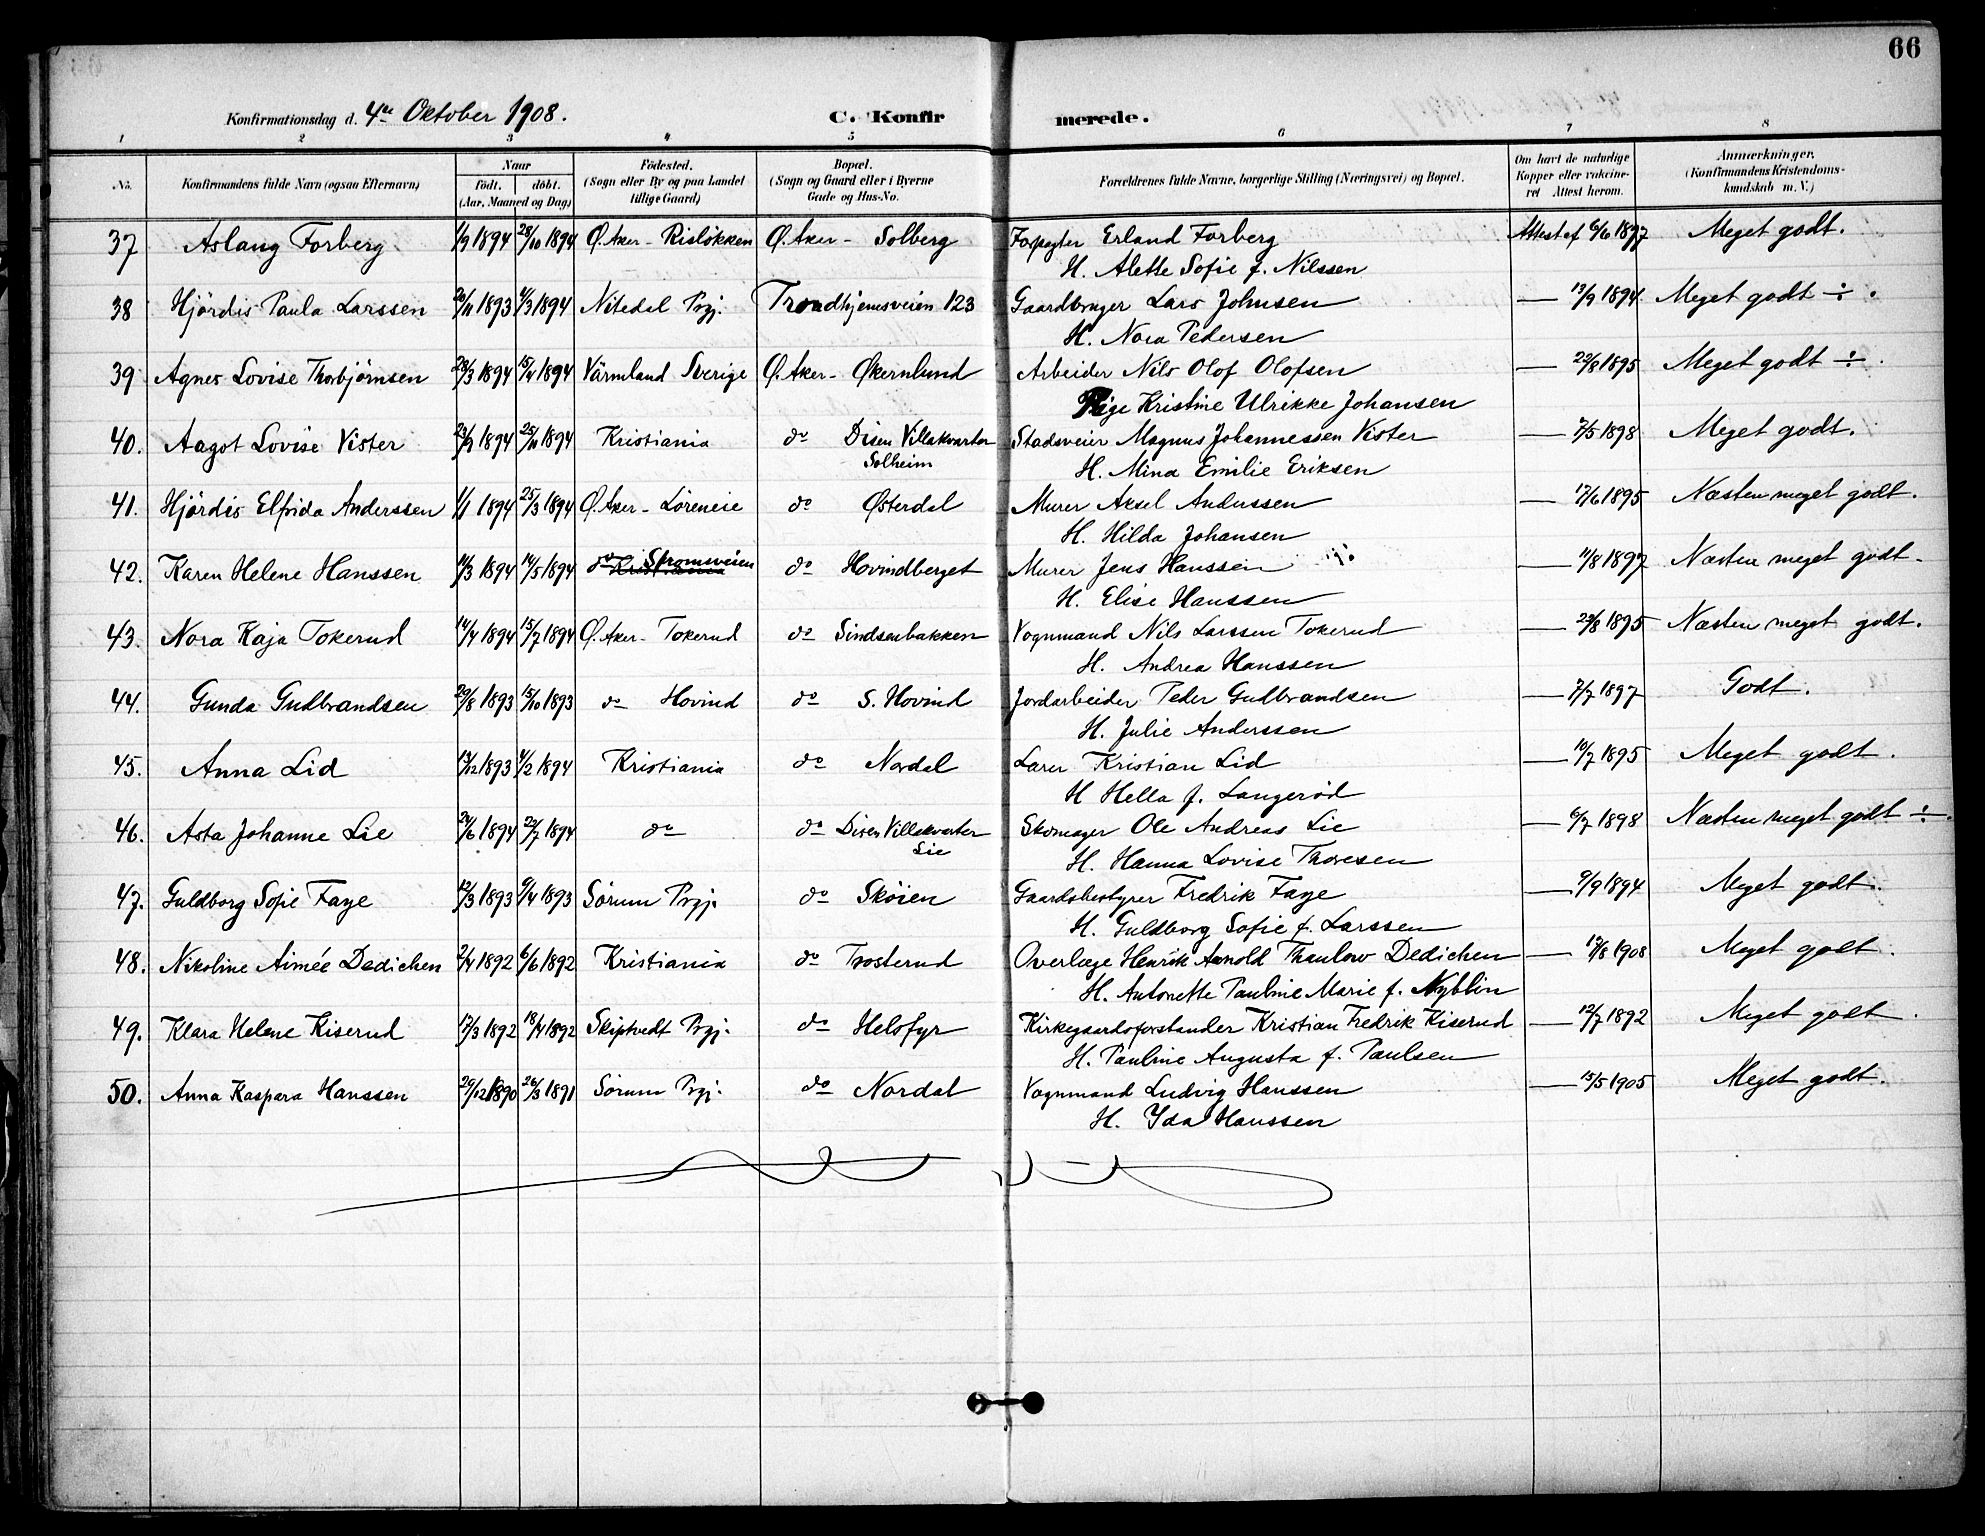 66
Konfirmationsdag d. 4de Oktober 1908.
C. Konfirmerede.
1 2 3 4 5 6 7 8
No. Konfirmandens fulde Navn (ogsaa Efternavn) Naar födt. döbt. (Aar, Maaned og Dag) Födested. (Sogn eller By og paa Landet tillige Gaard) Bopæl. (Sogn og Gaard eller i Byerne Gade og Hus-No. Forældrenes fulde Navne, borgerlige Stilling (Næringsvei) og Bopæl. Om havt de naturlige Kopper eller vakcineret Attest herom. Anmærkninger. (Konfirmandens Kristendomskundskab m. V.)
37 Aslaug Forberg 1/9 1894 28/10 1894 Ø. Aker - Risløkken Ø. Aker - Solberg Forpagter Erland Forberg Attest af 6/6 1897 Meget godt.
H. Alette Sofie f. Nilssen
38 Hjördis Paula Larssen 20/11 1893 4/3 1894 Nitedal Prgj. Trondhjemsveien 123 Gaardbruger Lars Johnsen — 13/9 1894 Meget godt ÷ .
H. Nora Pedersen
39 Agnes Lovise Thorbjørnsen 23/3 1894 15/4 1894 Värmland Sverige Ø. Aker - Økernlund Arbeider Nils Olof Olofsen — 22/8 1895 Meget godt ÷ .
Pige Kristine Ulrikke Johansen
40. Aagot Lovise Vister 23/9 1894 25/11 1894 Kristiania do Disen Villakvarter Stadsveier Magnus Johannessen Vister — 7/5 1898 Meget godt.
Solheim H. Mina Emilie Eriksen
41. Hjördis Elfrida Anderssen 1/1 1894 25/3 1894 Ø. Aker - Löreneie do Østerdal Murer Aksel Anderssen — 17/6 1895 Næsten meget godt.
H. Hilda Johansen
42. Karen Helene Hanssen 14/3 1894 14/5 1894 do Strømsveien do Hovindberget Murer Jens Hanssen — 11/8 1897 Næsten meget godt.
Kristiania H. Elise Hanssen
43. Nora Kaja Tokerud 14/4 1894 15/7 1894 Ø. Aker - Tokerud do Sindsenbakken Vognmand Nils Larssen Tokerud — 29/8 1895 Næsten meget godt.
H. Andrea Hanssen
44. Gunda Gudbrandsen 29/8 1893 15/10 1893 do Hovind do S. Hovind Jordarbeider Peder Gudbrandsen — 7/7 1897 Godt.
H. Julie Anderssen
45. Anna Lid 17/12 1893 4/2 1894 Kristiania do Nordal Lærer Kristian Lid — 10/7 1895 Meget godt .
H Hella f. Langerød
46. Asta Johanne Lie 24/6 1894 22/7 1894 do do Disen Villakvarter Skomager Ole Andreas Lie — 6/7 1898 Næsten meget godt ÷.
Lie H. Hanna Lovise Thoresen
47. Guldborg Sofie Faye 12/3 1893 9/4 1893 Sørum Prgj. do Skøien Gaardsbestyrer Fredrik Faye — 9/9 1894 Meget godt.
H. Guldborg Sofie f. Larssen
48. Nikoline Aimée Dedichen 2/4 1892 6/6 1892 Kristiania do Trosterud Overlæge Henrik Arnold Thaulow Dedichen — 17/8 1908 Meget godt .
H. Antonette Pauline Marie f. Nyblin
49. Klara Helene Kiserud 17/3 1892 18/4 1892 Skiptvedt Prgj. do Helsfyr Kirkegaardsforstander Kristian Fredrik Kiserud — 12/7 1892 Meget godt .
H. Pauline Augusta f. Paulsen
50. Anna Kaspara Hanssen 29/12 1890 26/3 1891 Sørum Prgj. do Nordal Vognmand Ludvig Hanssen — 15/5 1905 Meget godt.
H. Ida Hanssen